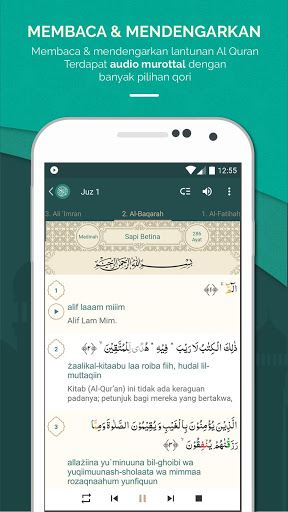 MEMBACA & MENDENGARKAN
Membaca & mendengarkan lantunan Al Quran
Terdapat audio murottal dengan
banyak pilihan qori
12:55
Juz 1
3. Ali 'Imran
2. Al-Baqarah
1. Al-Fatihah
Madinah
Sapi Betina
286
Ayat
بِسْمِ اللَّهِ الرَّحْمَٰنِ الرَّحِيمِ
1
الٓمّٓ ۚ ﴿١﴾
alif laaam miiim
Alif Lam Mim.
2
ذٰلِكَ الْكِتٰبُ لَا رَيْبَ ۛ فِيْهِ ۛ هُدًى لِّلْمُتَّقِيْنَ ﴿٢﴾
żaalikal-kitaabu laa roiba fiih, hudal lil-
muttaqiin
Kitab (Al-Qur'an) ini tidak ada keraguan
padanya; petunjuk bagi mereka yang bertakwa,
3
الَّذِيْنَ يُؤْمِنُوْنَ بِالْغَيْبِ وَيُقِيْمُوْنَ الصَّلٰوةَ وَمِمَّا
رَزَقْنٰهُمْ يُنْفِقُوْنَ ﴿٣﴾
allażiina yu\`minuuna bil-ghoibi wa
yuqiimuunash-sholaata wa mimmaa
rozaqnaahum yunfiquun